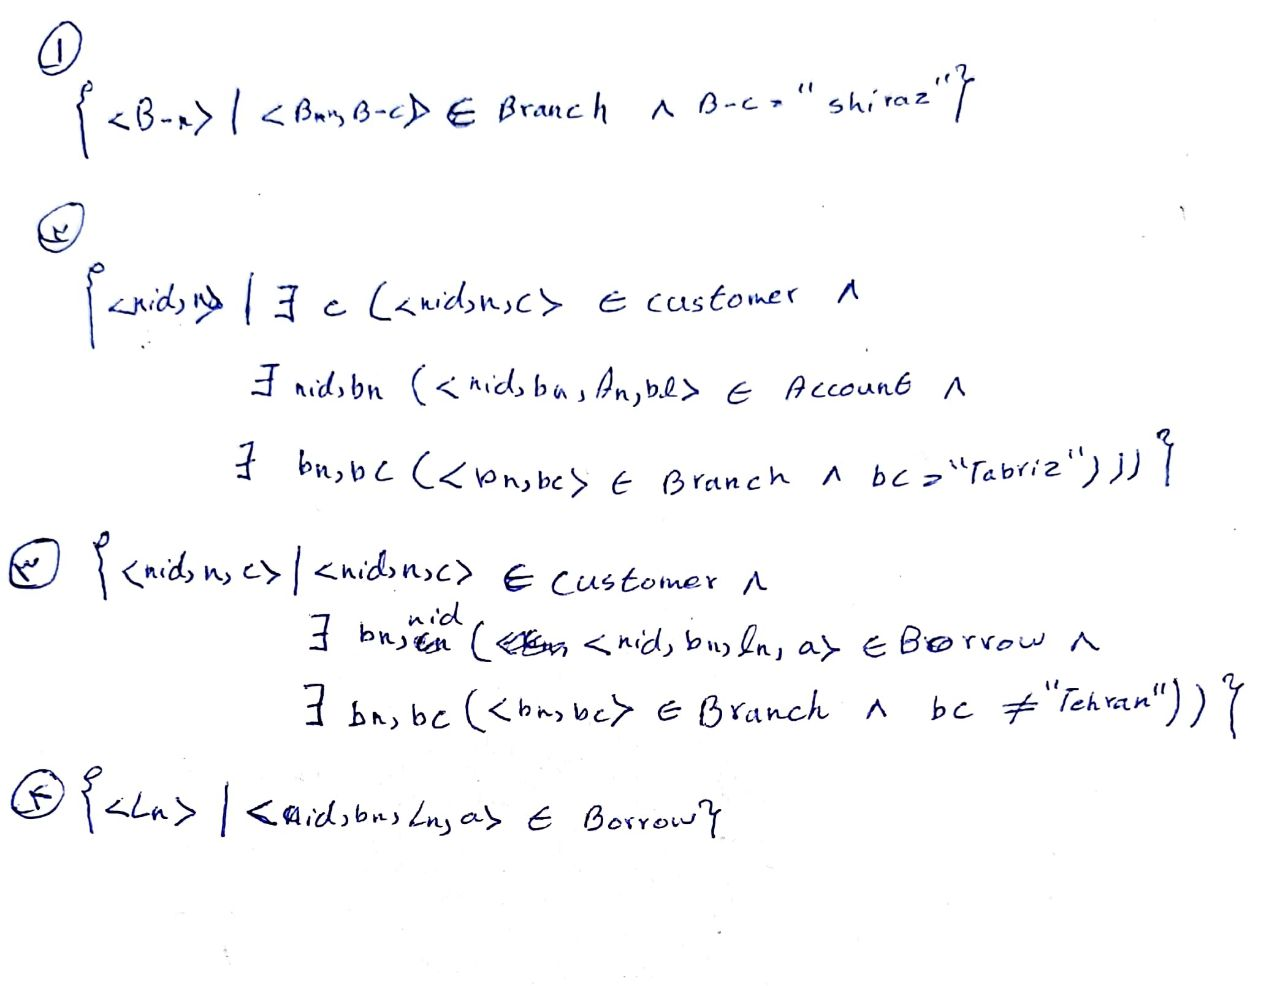 ①
{<B-n> | <B-n, B-c> ∈ Branch ∧ B-c = "shiraz"}
②
{<nid, n> | ∃ c (<nid, n, c> ∈ customer ∧
∃ nid, bn (<nid, bn, An, bl> ∈ Account ∧
∃ bn, bc (<bn, bc> ∈ Branch ∧ bc = "Tabriz")))}
③ {<nid, n, c> | <nid, n, c> ∈ customer ∧
∃ bn, nid (<nid, bn, ln, a> ∈ Borrow ∧
∃ bn, bc (<bn, bc> ∈ Branch ∧ bc ≠ "Tehran"))}
④ {<Ln> | <nid, bn, Ln, a> ∈ Borrow}